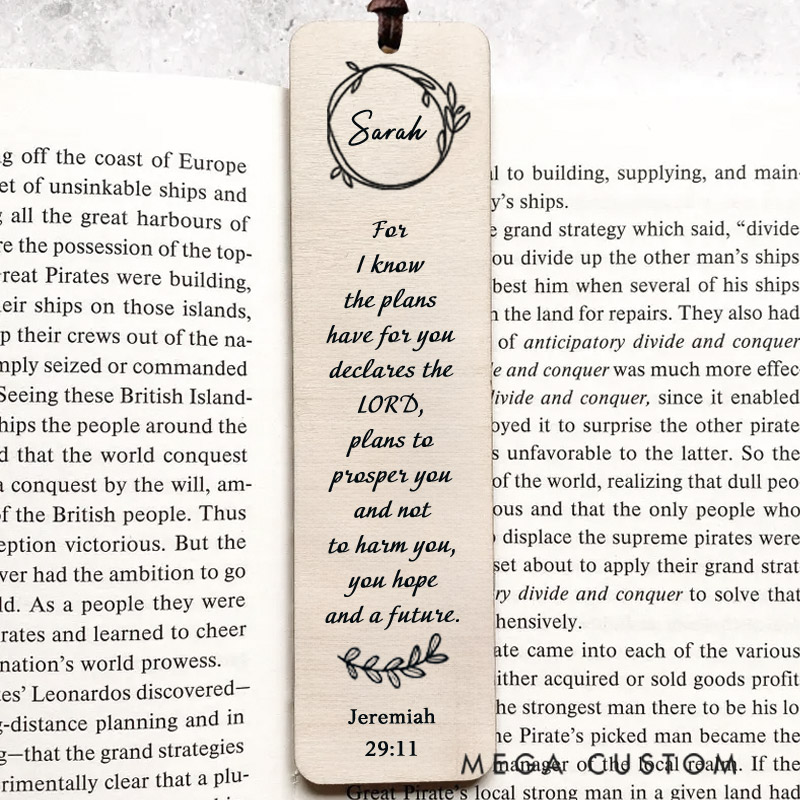 Sarah
For
I know
the plans
have for you
declares the
LORD,
plans to
prosper you
and not
to harm you,
you hope
and a future.
Jeremiah
29:11
g off the coast of Europe
et of unsinkable ships and
all the great harbours of
re the possession of the top-
reat Pirates were building,
eir ships on those islands,
p their crews out of the na-
mply seized or commanded
Seeing these British Island-
hips the people around the
d that the world conquest
a conquest by the will, am-
of the British people. Thus
eption victorious. But the
ver had the ambition to go
ld. As a people they were
rates and learned to cheer
nation's world prowess.
es' Leonardos discovered—
g-distance planning and in
g—that the grand strategies
rimentally clear that a plu-
l to building, supplying, and main-
y's ships.
e grand strategy which said, “divide
ou divide up the other man's ships
best him when several of his ships
n the land for repairs. They also had
of anticipatory divide and conquer
e and conquer was much more effec-
divide and conquer, since it enabled
oyed it to surprise the other pirate
s unfavorable to the latter. So the
of the world, realizing that dull peo
ous and that the only people who
displace the supreme pirates were
set about to apply their grand strat
ry divide and conquer to solve that
hensively.
ate came into each of the various
ither acquired or sold goods profit
he strongest man there to be his lo
he Pirate's picked man became the
manager of the local realm. If the
Great Pirate's local strong man in a given land had
MEGA CUSTOM